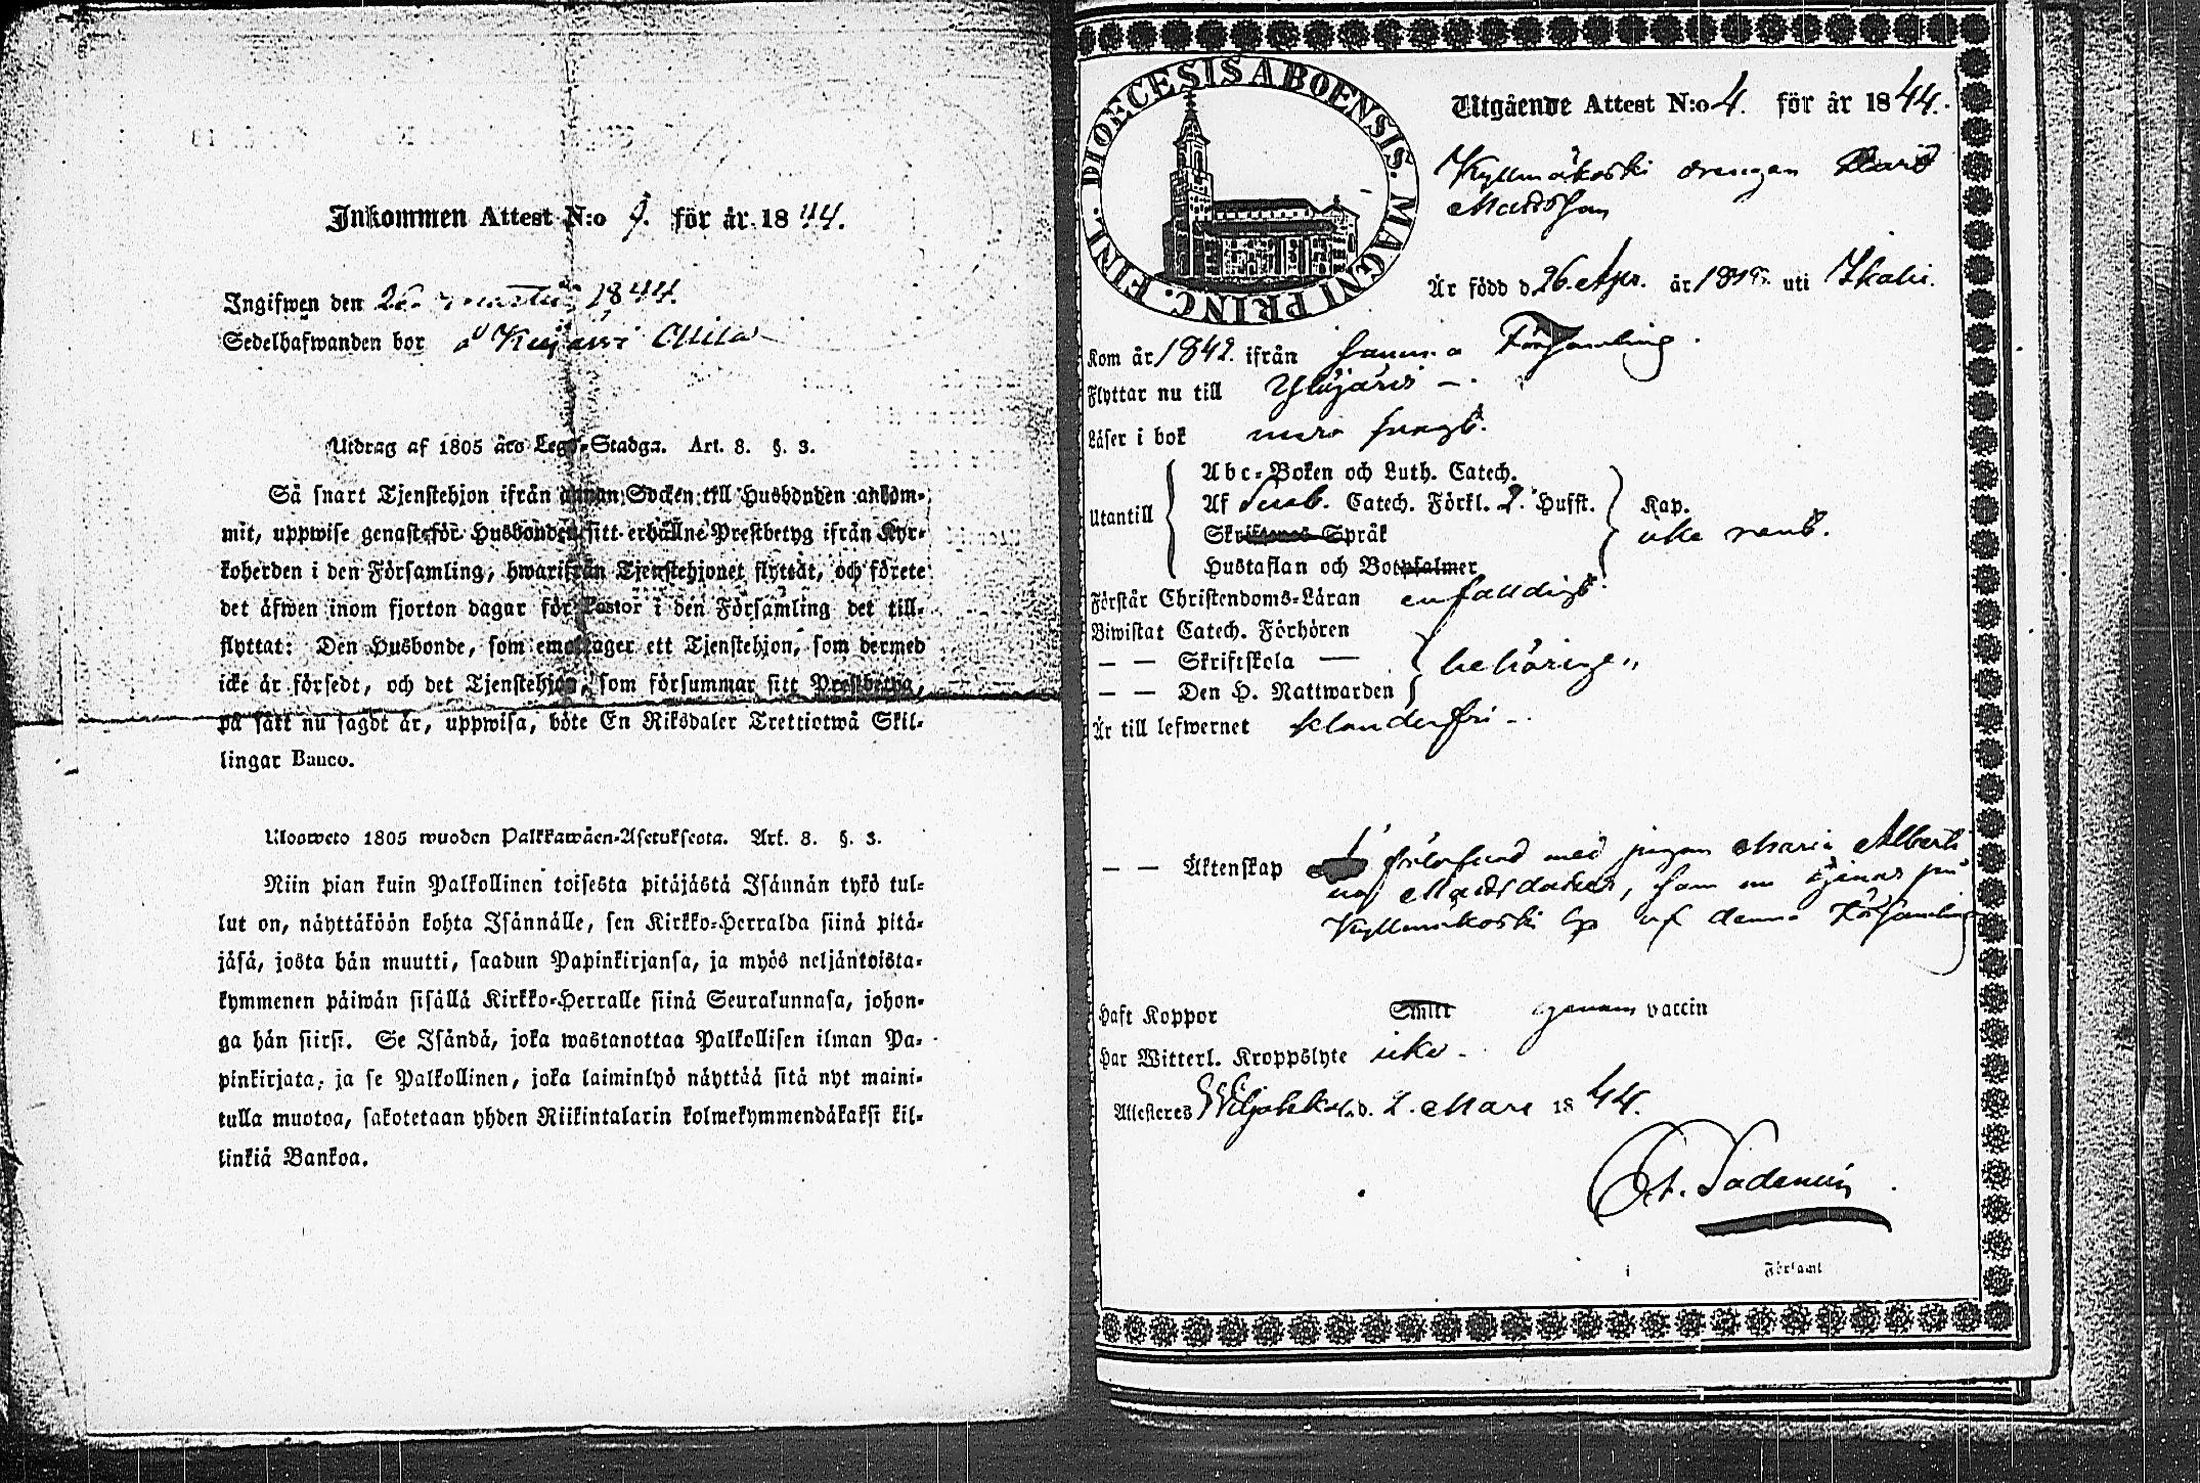 Inkommen Attest N:o 9. för år 1844.
Ingifwen den 1844.
Sedelhafwanden bor å
Utdrag af 1805 års Lego-Stadga. Art. 8. §. 3.
Så snart Tjenstehjon ifrån annan Socken till Husbonden ankom-
mit, uppwise genast för Husbonden sitt erhållne Prestbetyg ifrån Kyr-
koherden i den Församling, hwarifrån Tjenstehjonet flyttat, och förete
det äfwen inom fjorton dagar för Pastor i den Församling det till-
flyttat: Den Husbonde, som emottager ett Tjenstehjon, som dermed
icke är försedt, och det Tjenstehjon, som försummar sitt Prestbetyg,
på sätt nu sagdt är, uppwisa, böte En Riksdaler Trettiotwå Skil-
lingar Banco.
Ulosweto 1805 wuoden Palkkawäen-Asetuksesta. Art. 8. §. 3.
Niin pian kuin Palkollinen toisesta pitäjästä Isännän tykö tul-
lut on, näyttäköön kohta Isännälle, sen Kirkko-Herralda siinä pitä-
jäsä, josta hän muutti, saadun Papinkirjansa, ja myös neljäntoista-
kymmenen päiwän sisällä Kirkko-Herralle siinä Seurakunnasa, johon-
ga hän siirsi. Se Isändä, joka wastanottaa Palkollisen ilman Pa-
pinkirjata, ja se Palkollinen, joka laiminlyö näyttää sitä nyt maini-
tulla muotoa, sakotetaan yhden Riikintalarin kolmekymmendäkaksi kil-
linkiä Bankoa.
DIOECESIS ABOENSIS. MAGNI PRINC. FINL.
Utgående Attest N:o 4. för år 1844.
Kyllmäkoski drengen
Matsson
Är född d. 26. Apr. år uti Ikalis.
Kom år 1842. ifrån samma Församling.
Flyttar nu till Ylöjärvi
Läser i bok
Utantill
Abc-Boken och Luth. Catech.
Af Catech. Förkl. 2. Hufst. Kap.
Skriftenes Språk icke rent.
Hustaflan och Botpsalmer
Förstår Christendoms-Läran enfaldigt.
Biwistat Catech. Förhören
— — Skriftskola — behörigen
— — Den H. Nattwarden
Är till lefwernet klanderfri
— — Äktenskap förlofwad med pigan Maria Alberti
na Matsdotter, som nu tjenar på
Kyllmäkoski af denna Församling
Haft Koppor Smitt genom vaccin
Har Witterl. Kroppslyte icke
Attesteres d. 2. Mars 1844.
i Församl